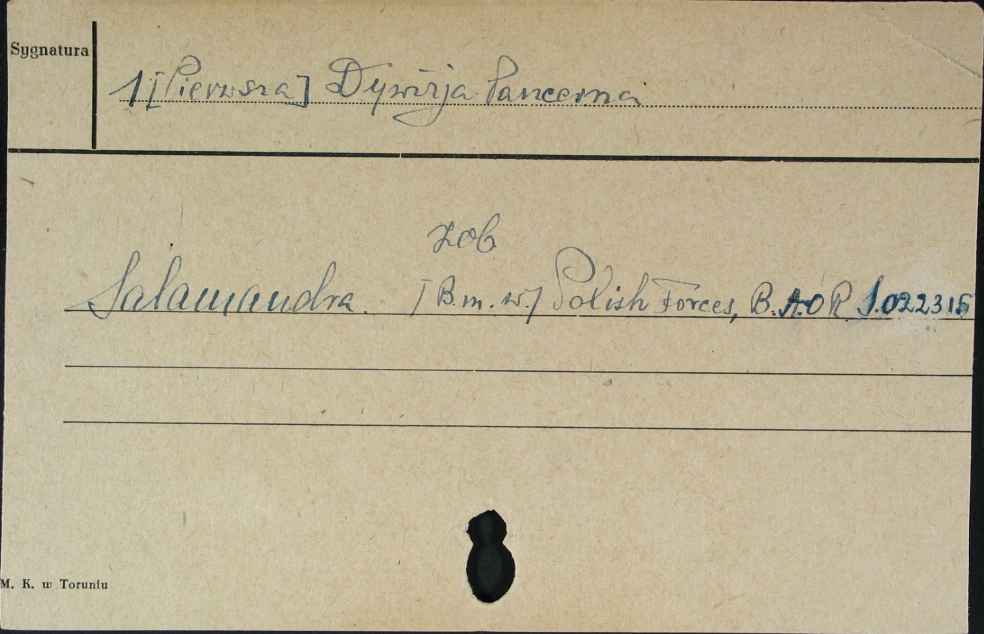 Sygnatura
1 [Pierwsza] Dywizja Pancerna
zob
Salamandra. [B.m.w.] Polish Forces, B.A.O.R. S.022315
M. K. w Toruniu